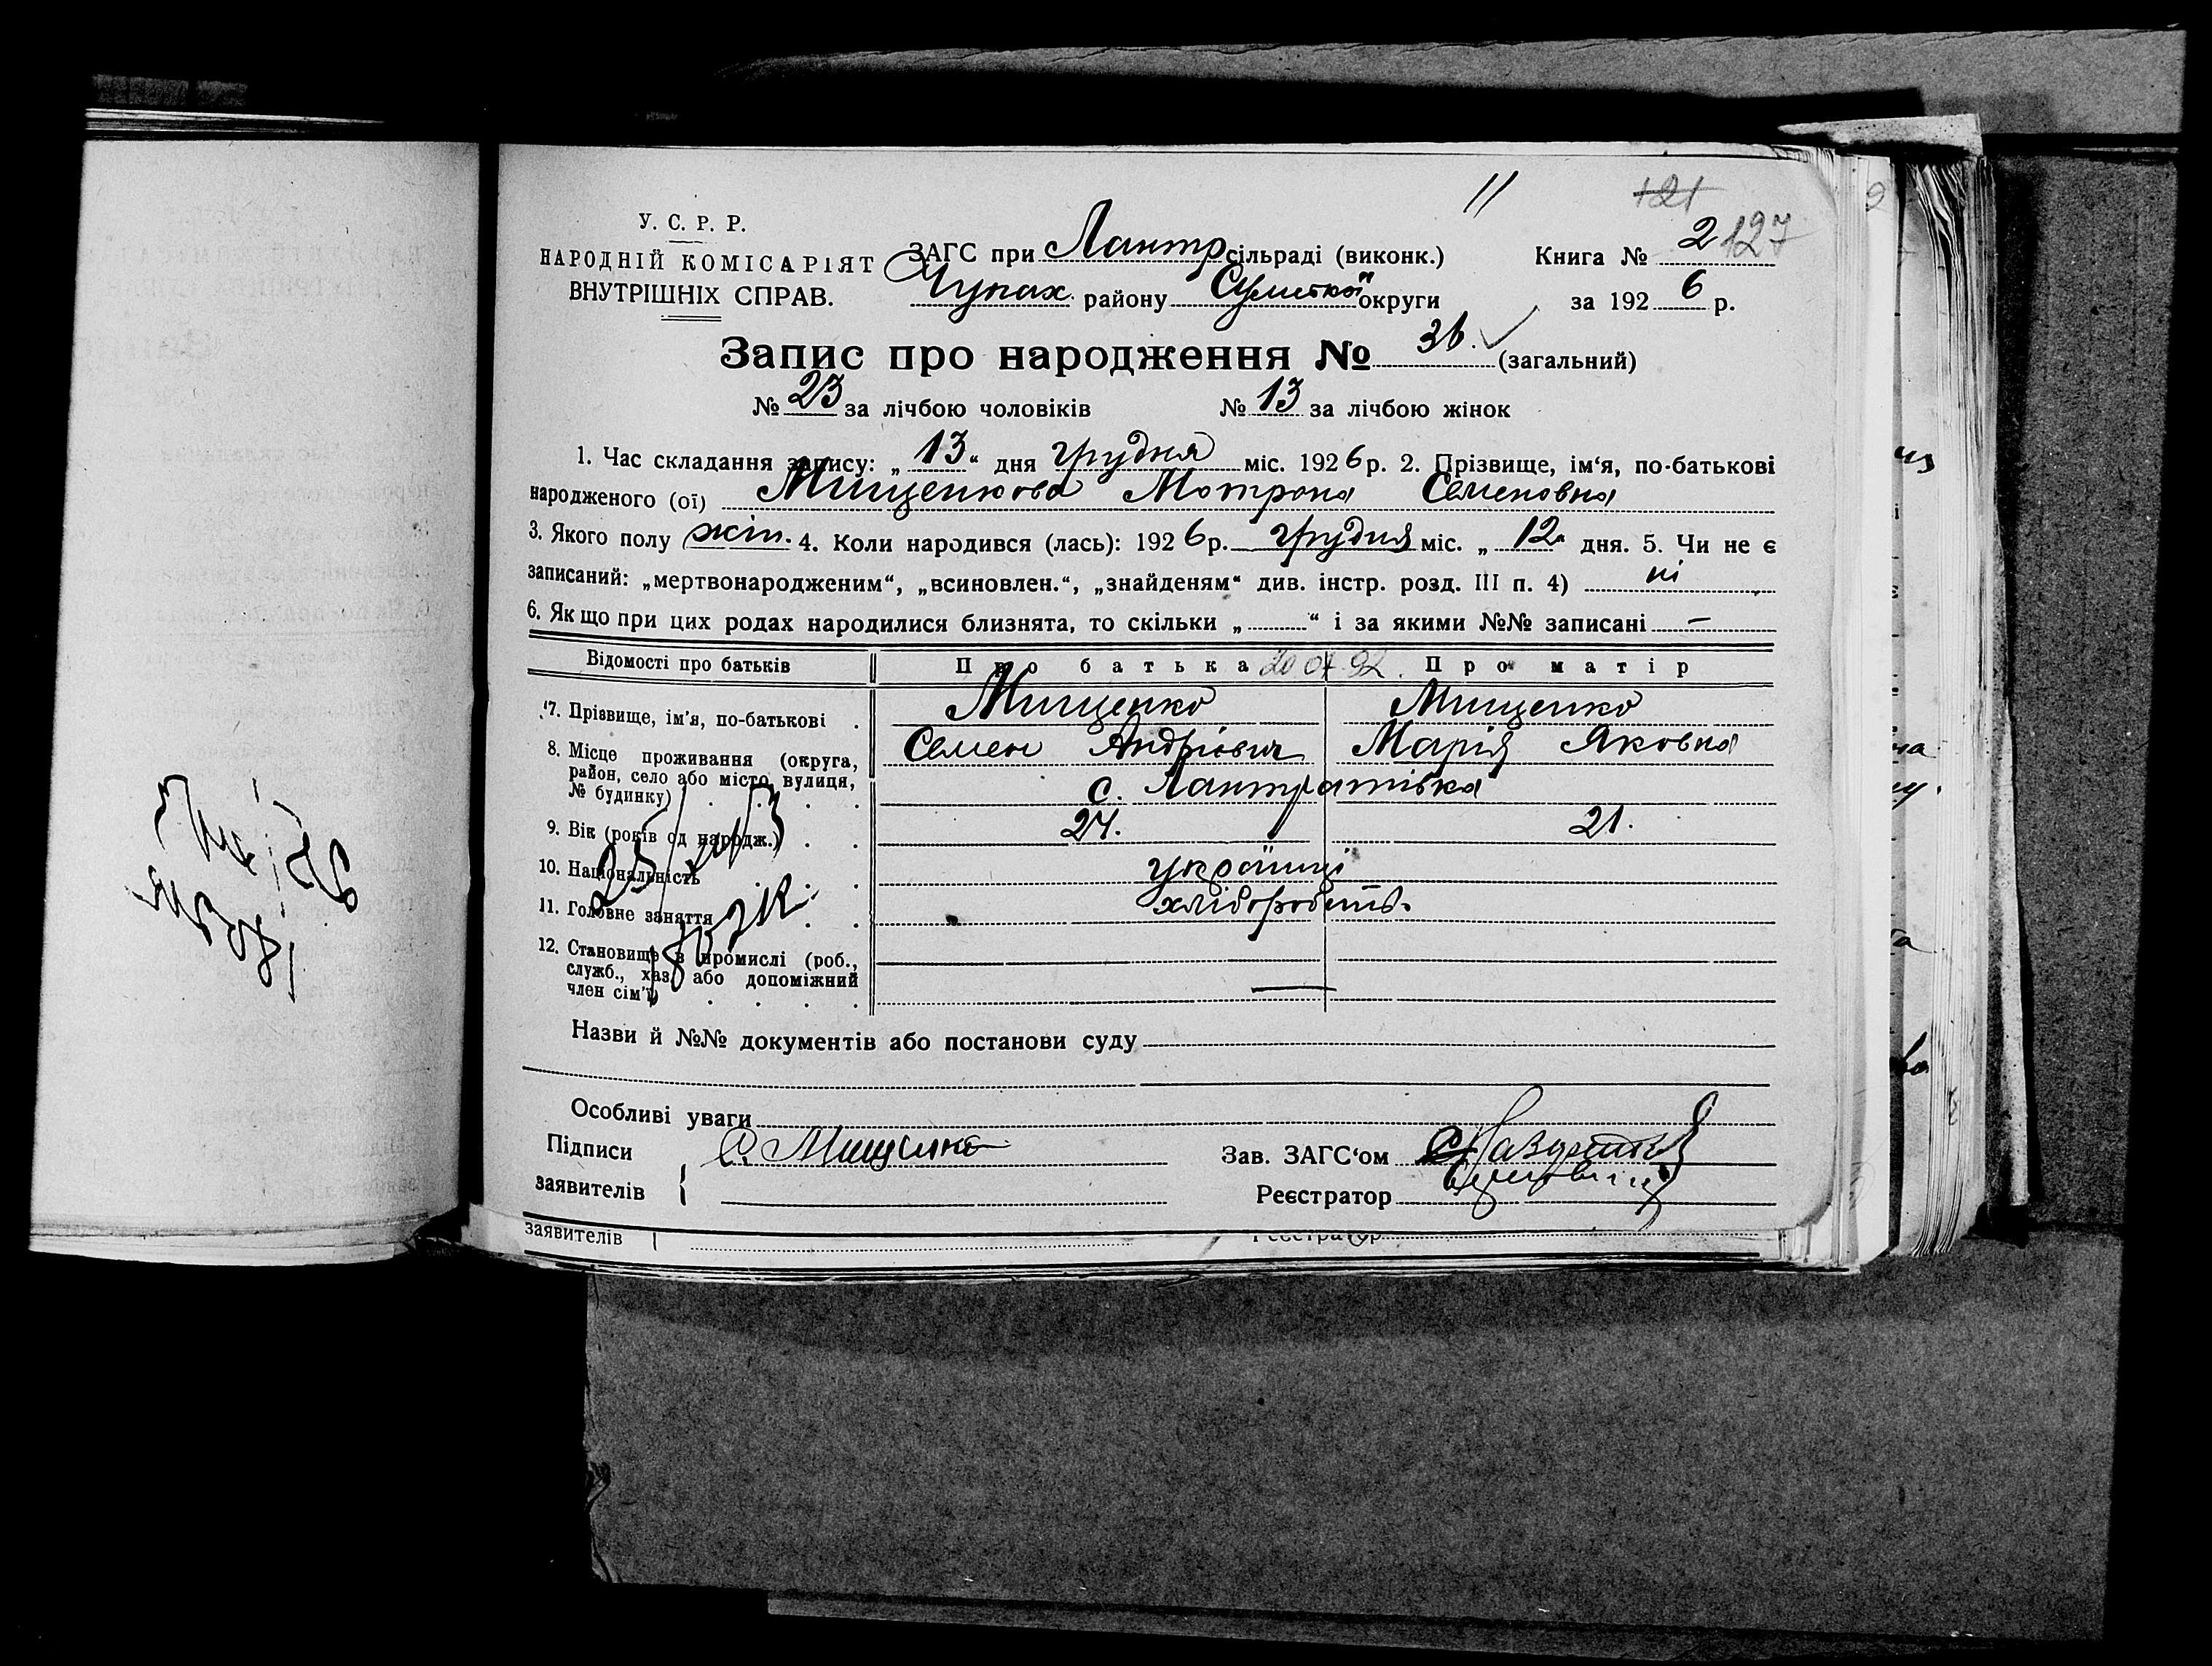 11
121
У. С. Р. Р.
НАРОДНІЙ КОМІСАРІЯТ
ВНУТРІШНІХ СПРАВ.
ЗАГС при Лантр сільраді (виконк.)
Чупах. району Сумської округи
Книга № 2 127
за 192 6 р.
Запис про народження № 36. (загальний)
№ 23 за лічбою чоловіків № 13 за лічбою жінок
1. Час складання запису: „ 13 “ дня грудня міс. 192 6 р. 2. Прізвище, ім‘я, по-батькові
народженого (ої) Мищенкова Мотрона Семеновна
3. Якого полу жін. 4. Коли народився (лась): 192 6 р. грудня міс. „ 12 “ дня. 5. Чи не є
записаний: „мертвонародженим“, „всиновлен.“, „знайденям“ див. інстр. розд. III п. 4) ні
6. Якщо при цих родах народилися близнята, то скільки „ “ і за якими №№ записані —
Відомості про батьків Про батька 20 07 92. Про матір
7. Прізвище, ім'я, по-батькові . Мищенко Мищенко
Семен Андрієвич Марія Яковна
8. Місце проживання (округа,
район, село або місто, вулиця,
№ будинку) . . . . с. Лантратівка
9. Вік (років од народж.) . . 24. 21.
10. Національність . . . українці
11. Головне заняття . . . хліборобств.
12. Становище в промислі (роб.,
служб., хаз. або допоміжний
член сім'ї) . . . . —
Назви й №№ документів або постанови суду
Особливі уваги
Підписи С. Мищенко
заявителів {
Зав. ЗАГС‘ом
Реєстратор
заявителів
Реєстратор